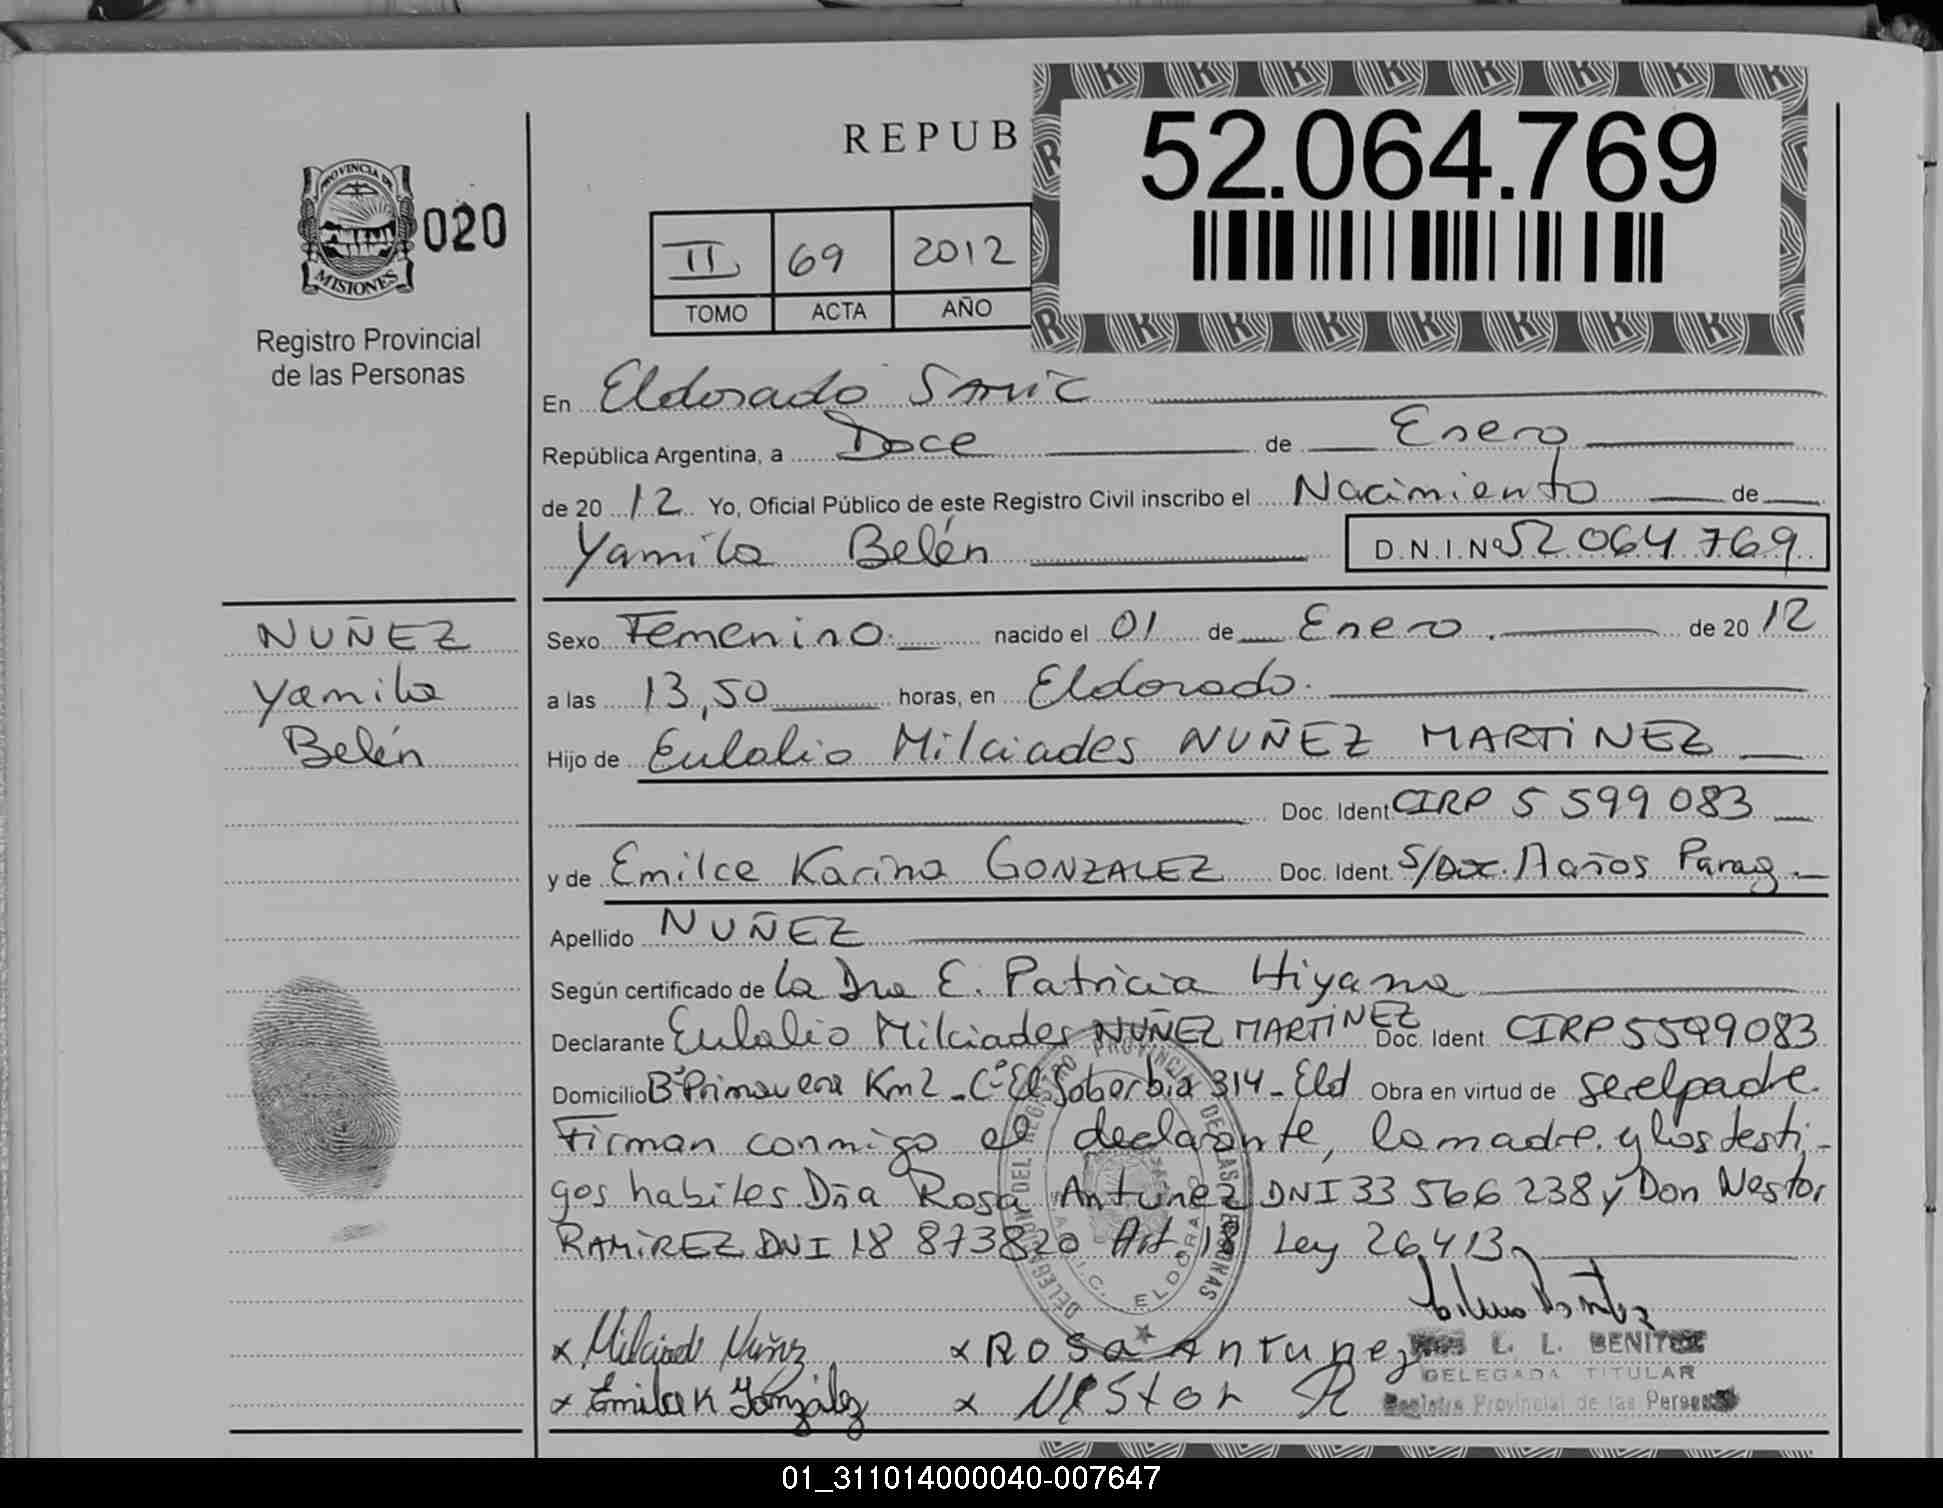 REPUB
52.064.769
PROVINCIA DE
MISIONES
020
II 69 2012
TOMO ACTA AÑO
Registro Provincial
de las Personas
En Eldorado
República Argentina, a Doce de Enero
de 2012 Yo, Oficial Público de este Registro Civil inscribo el Nacimiento de
Yamila Belén D.N.I.Nº 52 064 769
NUÑEZ
Yamila
Belén
Sexo Femenino nacido el 01 de Enero de 2012
a las 13,50 horas, en Eldorado.
Hijo de Eulalio Milciades NUÑEZ MARTINEZ
Doc. Ident. CIRP 5 599 083
y de Emilce Karina GONZALEZ Doc. Ident. S/Doc. años Parag
Apellido NUÑEZ
Según certificado de La Dra E. Patricia Hiyama
Declarante Eulalio Milciades NUÑEZ MARTINEZ Doc. Ident. CIRP 5599083
Domicilio Bº Primavera Km2 - C. El Soberbia 314 - Eld Obra en virtud de ser el padre.
Firman conmigo el declarante, la madre y los testi-
gos habiles Dña Rosa Antunez DNI 33 566 238 y Don Nestor
RAMIREZ DNI 18 873820 Art. 18 Ley 26413
DELEGACION DEL REGISTRO PROVINCIAL DE LAS PERSONAS
ELDORADO
x Milciade Nuñez x Rosa Antunez
L. L. BENITEZ
DELEGADA TITULAR
Registro Provincial de las Personas
x Emilce K González x Nestor R
01_311014000040-007647